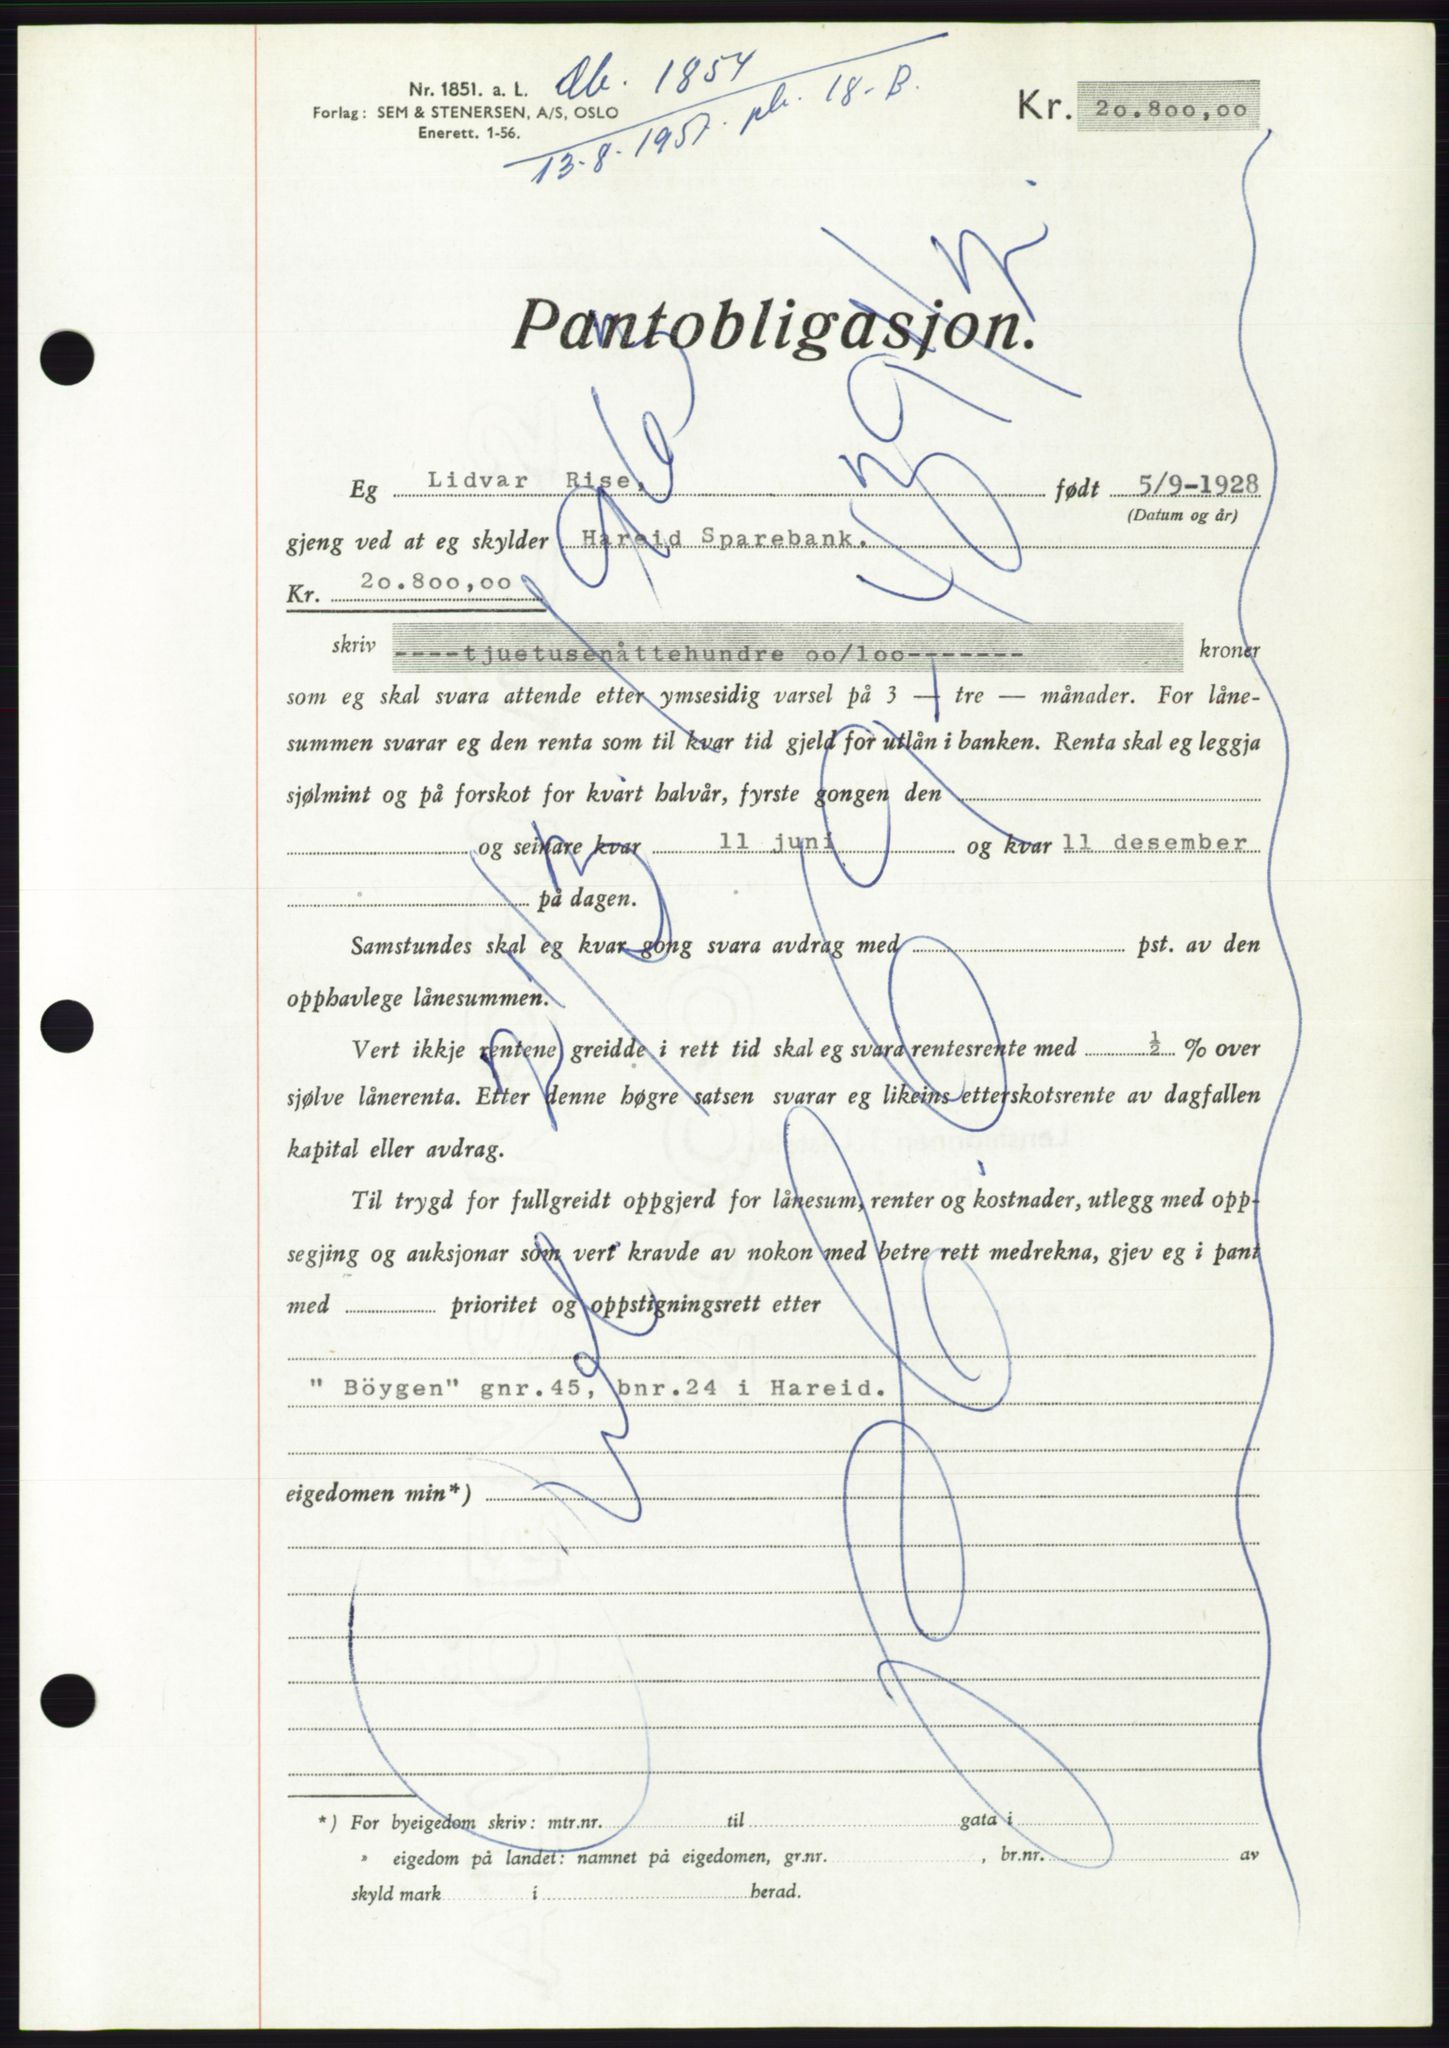 Nr. 1851. a. L.
Forlag: SEM & STENERSEN, A/S, OSLO
Enerett. 1-56.
Db. 1854
13-8-1957. pb. 18-B.
Kr. 20.800,00
Pantobligasjon.
Eg Lidvar Rise, født 5/9-1928
(Datum og år)
gjeng ved at eg skylder Hareid Sparebank.
Kr. 20.800,00
skriv ----tjuetusenåttehundre oo/loo------- kroner
som eg skal svara attende etter ymsesidig varsel på 3 — tre — månader. For låne-
summen svarar eg den renta som til kvar tid gjeld for utlån i banken. Renta skal eg leggja
sjølmint og på forskot for kvart halvår, fyrste gongen den
og seinare kvar 11 juni og kvar 11 desember
på dagen.
Samstundes skal eg kvar gong svara avdrag med pst. av den
opphavlege lånesummen.
Vert ikkje rentene greidde i rett tid skal eg svara rentesrente med ½ % over
sjølve lånerenta. Etter denne høgre satsen svarar eg likeins etterskotsrente av dagfallen
kapital eller avdrag.
Til trygd for fullgreidt oppgjerd for lånesum, renter og kostnader, utlegg med opp-
segjing og auksjonar som vert kravde av nokon med betre rett medrekna, gjev eg i pant
med prioritet og oppstigningsrett etter
" Böygen" gnr.45, bnr.24 i Hareid.
eigedomen min*)
*) For byeigedom skriv: mtr.nr. til gata i
» eigedom på landet: namnet på eigedomen, gr.nr. , br.nr. av
skyld mark i herad.